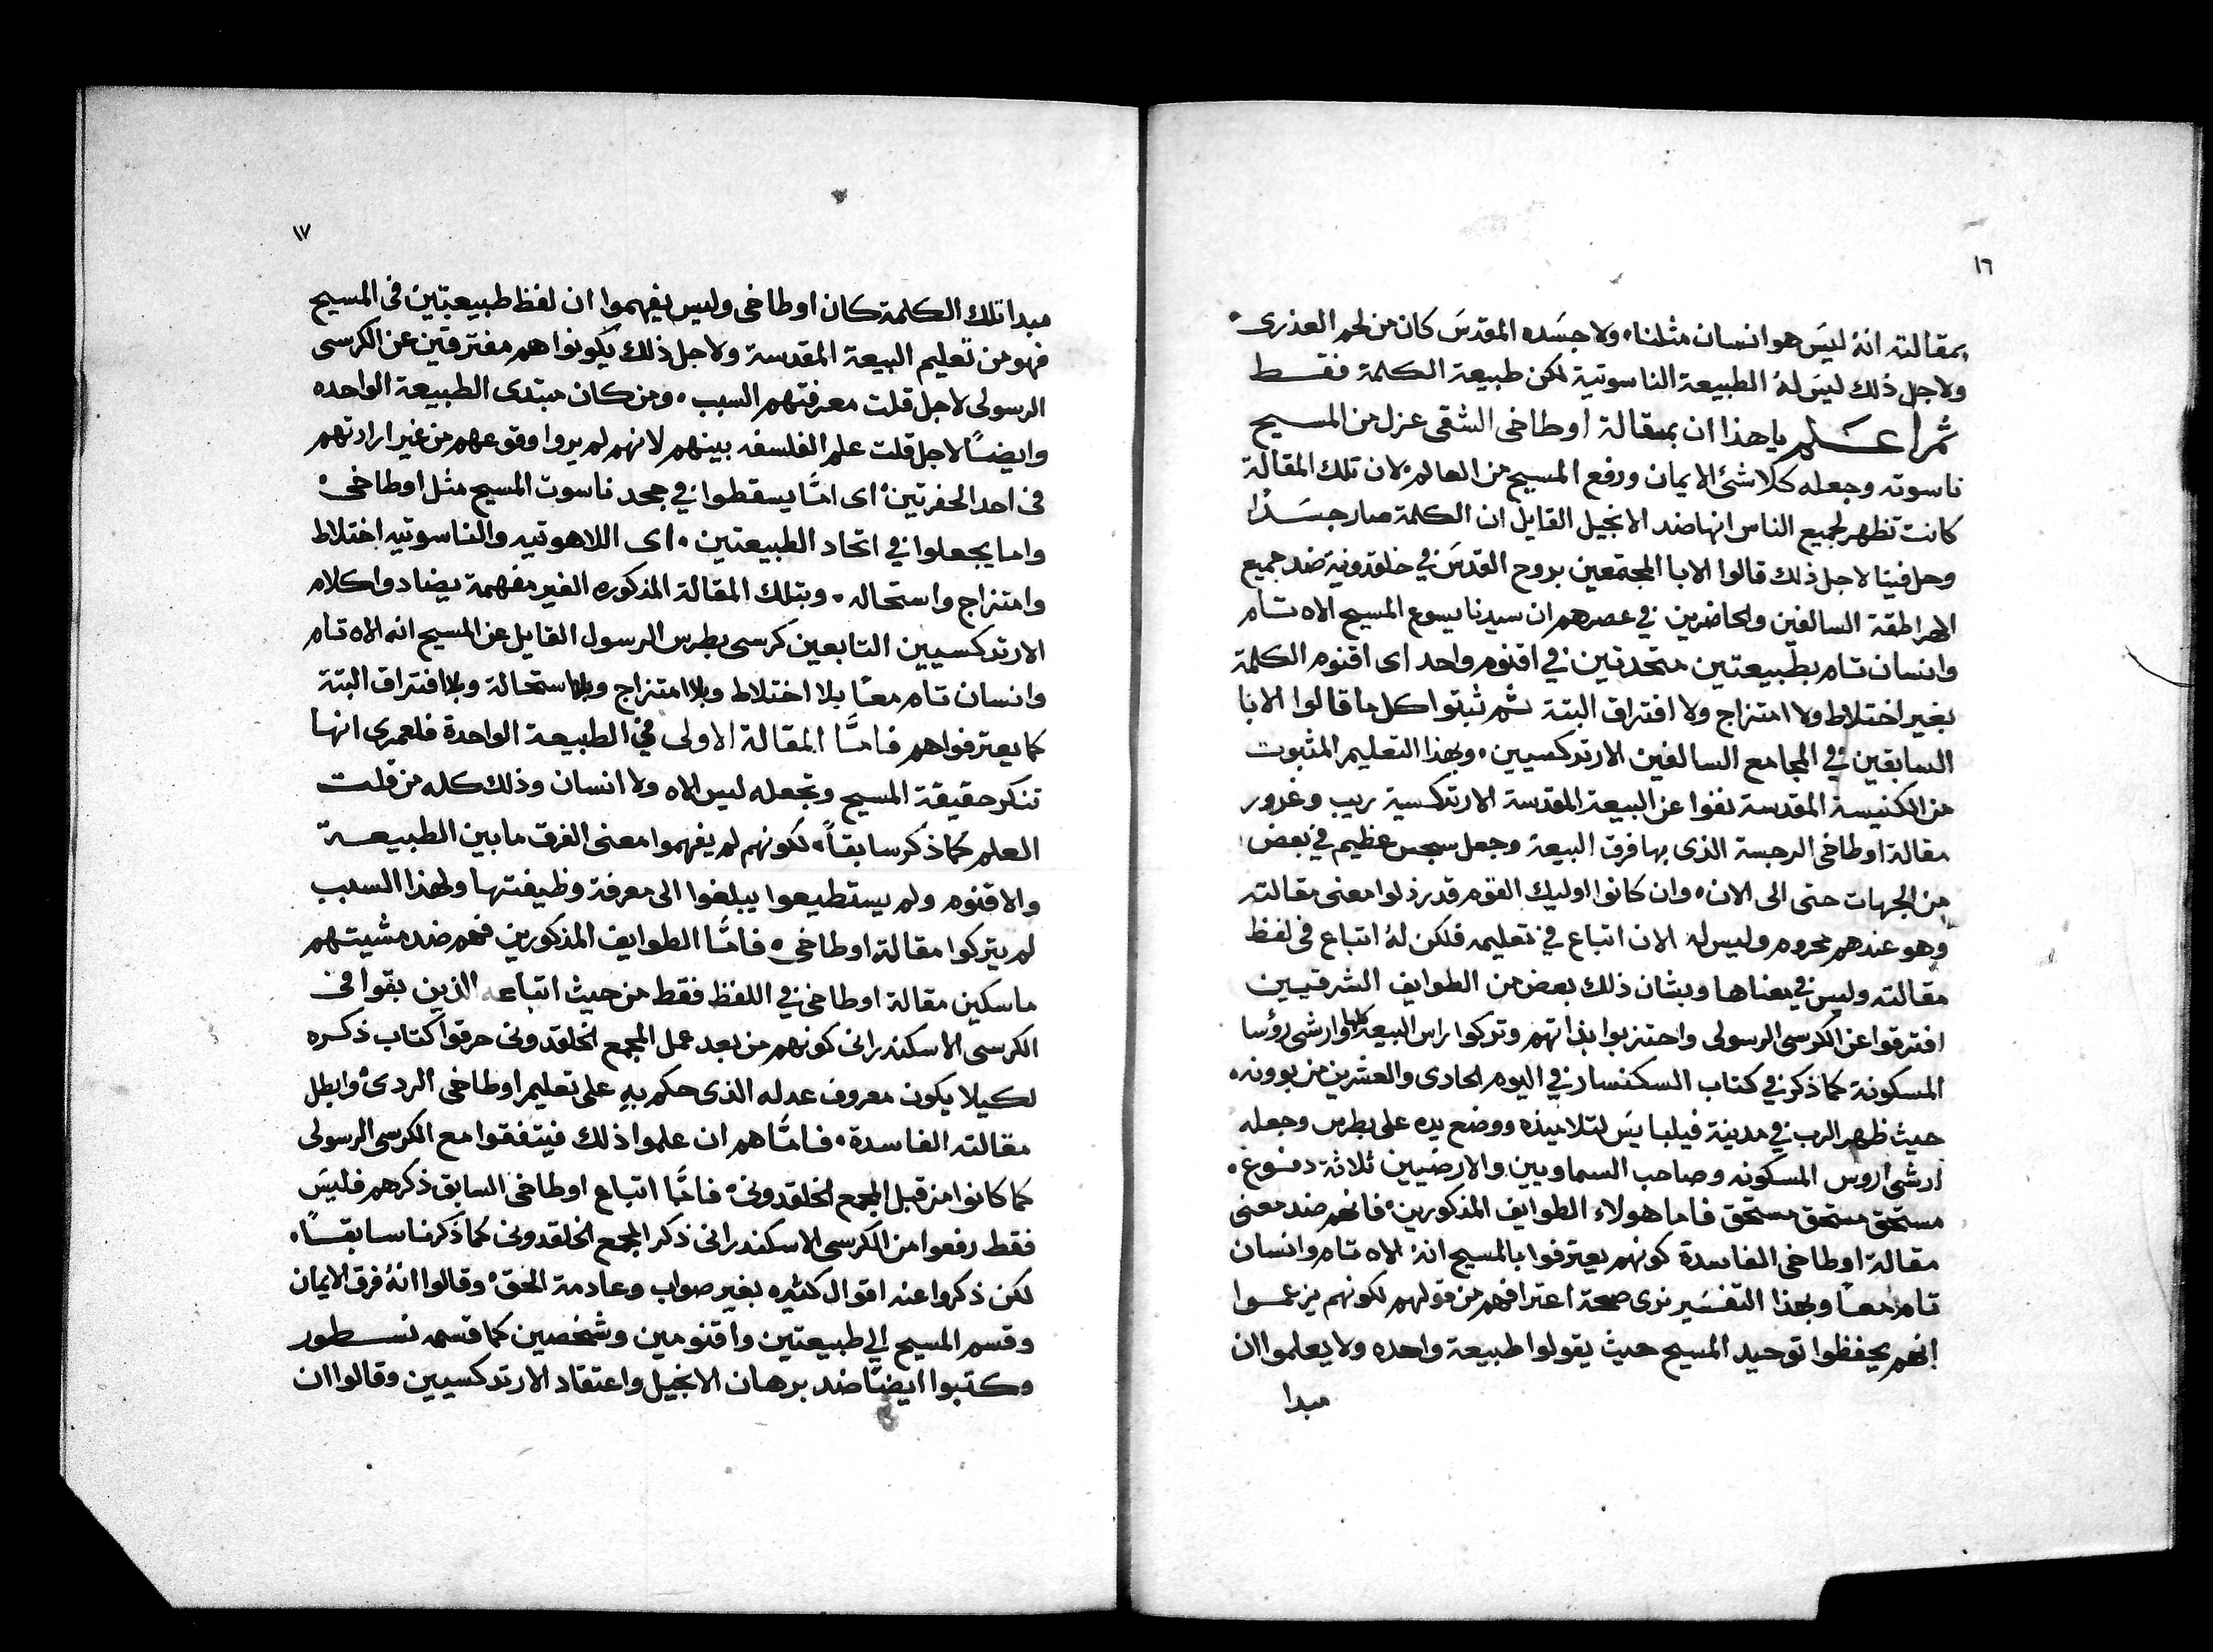 ١٦
بمقالته انهُ ليسَ هو انسان مثلنا، ولا جسَده المقدسَ كان من لحم العذرى،
ولاجل ذلك ليسَ لهُ الطبيعة الناسوتية لكن طبيعة الكلمة فقــط
ثم اعــلم يا هذا ان بمقالة اوطاخى الشقى عزل من المسيح
ناسوته وجعله كلاشئ الايمان ورفع المسيح من العالم لان تلك المقالة
كانت تظهر لجميع الناس انها ضد الانجيل القايل ان الكلمة صار جسَدًا
وحل فينا لاجل ذلك قالوا الابا المجتمعين بروح القدسَ في خلقدونية ضد جميع
الهراطقة السالفين والحاضرين في عصرهم ان سيدنا يسوع المسيح الاه تام
وانسان تام بطبيعتين متحدتين في اقنوم واحد اى اقنوم الكلمة
بغير اختلاط ولا امتزاج ولا افتراق البتة ثم ثبتوا كل ما قالوا الابا
السابقين في المجامع السالفين الارتدكسيين، وبهذا التعليم المثبوت
من الكنيسة المقدسة نفوا عن البيعة المقدسة الارتدكسية ريب وغرور
مقالة اوطاخى الرجسة الذى بها فرق البيعة وجعل سجس عظيم في بعض
من الجهات حتى الى الان، وان كانوا اوليك القوم قد رذلوا معنى مقالته
وهو عندهم محروم وليس له الان اتباع في تعليمه فلكن لهُ اتباع فى لفظ
مقالته وليس في معناها وبشان ذلك بعض من الطوايف الشرقيين
افترقوا عن الكرسى الرسولى واحتزبوا بذاتهم وتركوا راس البيعة كلها وارشى رؤسا
المسكونة كما ذكر في كتاب السكنسار في اليوم الحادى والعشرين من بوونه
حيث ظهر الرب في مدينة فيلبايسَ لتلاميذه ووضع يده على بطرس وجعله
ارشى اروس المسكونه وصاحب السماويين والارضيين ثلاثة دفوع،
مستحق مستحق مستحق فاما هولاء الطوايف المذكورين، فانهم ضد معنى
مقالة اوطاخى الفاسدة كونهم يعترفوا بالمسيح انهُ الاه تام وانسان
تام معاً وبهذا التفسَير نرى صحة اعترافهم من قولهم لكونهم يزعموا
انهم يحفظوا توحيد المسيح حيث يقولوا طبيعة واحده ولا يعلموا ان
مبدا
١٧
مبدا تلك الكلمة كان اوطاخى وليس يفهموا ان لفظ طبيعتين فى المسيح
فهو من تعليم البيعة المقدسة ولاجل ذلك يكونوا هم مفترقين عن الكرسى
الرسولى لاجل قلت معرفتهم السبب، ومن كان مبتدى الطبيعة الواحده
وايضاً لاجل قلت علم الفلسفه بينهم لانهم لم يروا وقوعهم من غير ارادتهم
فى احد الحفرتين، اى امَّا يسقطوا في جحد ناسوت المسيح مثل اوطاخى،
واما يجعلوا في اتحاد الطبيعتين، اى اللاهوتيه والناسوتيه اختلاط
وامتزاج واستحاله، وبتلك المقالة المذكوره الغير مفهمة يضادوا كلام
الارتدكسيين التابعين كرسى بطرس الرسول القايل عن المسيح انه الاه تام
وانسان تام معاً بلا اختلاط وبلا امتزاج وبلا استحالة وبلا افتراق البتة
كما يعترفوا هم فامَّا المقالة الاولى في الطبيعة الواحدة فلعمرى انها
تنكر حقيقة المسيح وتجعله ليس الاه ولا انسان وذلك كله من قلت
العلم كما ذكر سابقاً، لكونهم لم يفهموا معنى الفرق ما بين الطبيعــة
والاقنوم ولم يستطيعوا يبلغوا الى معرفة وظيفتها ولهذا السبب
لم يتركوا مقالة اوطاخى، فامَّا الطوايف المذكورين فهم ضد مشيتهم
ماسكين مقالة اوطاخى في اللفظ فقط من حيث اتباعه الذين بقوا فى
الكرسى الاسكندرانى كونهم من بعد عمل المجمع الخلقدونى حرقوا كتاب ذكره
لكيلا يكون معروف عدله الذى حكم بهِ على تعليم اوطاخى الردى، وابطل
مقالته الفاسدة، فامَّا هم ان علموا ذلك فيتفقوا مع الكرسى الرسولى
كما كانوا من قبل المجمع الخلقدونى، فامَّا اتباع اوطاخى السابق ذكرهم فليسَ
فقط رفعوا من الكرسى الاسكندرانى ذكر المجمع الخلقدونى كما ذكرنا سابقاً،
لكن ذكروا عنه اقوال كثيره بغير صواب وعادمة الحق، وقالوا انهُ فرق الايمان
وقسم المسيح الي طبيعتين واقنومين وشخصين كما قسمه نســطور
وكتبوا ايضاً ضد برهان الانجيل واعتقاد الارتدكسيين وقالوا ان